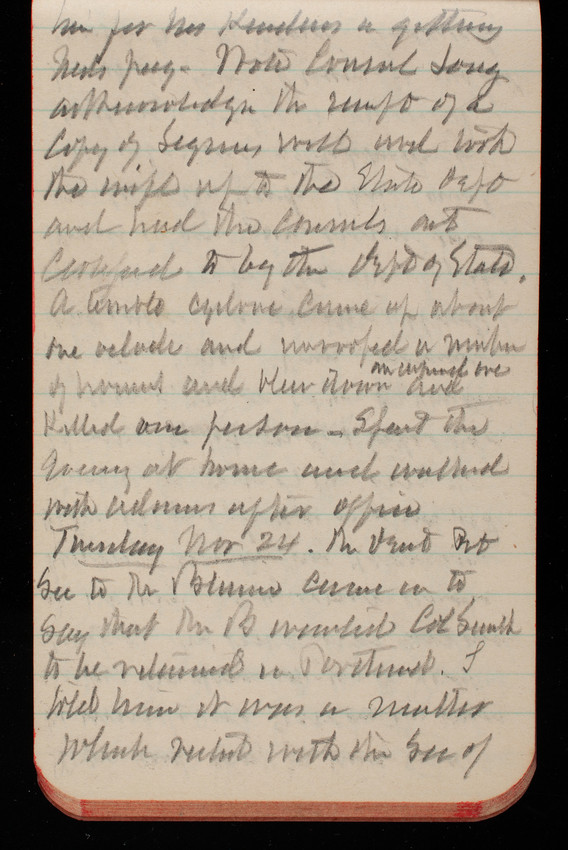 him for his Kindness in getting
his pay. Wrote Consul Long
acknowledge the receipt of a
Copy of will and took
the wife up to the State Dept
and had the Consuls act
Certified to by the Dept of State.
A terrible cyclone came up about
one oclock and unroofed a number
of houses and blew down
an unfinished one
and
Killed one person - Spent the
Evening at home and walked
with Adams after office
Tuesday Nov 24. The
Sec to the Blaine came in to
Say that the B wanted Col Smith
to be retained in Portland. I
told him it was a matter
which rested with the Sec of